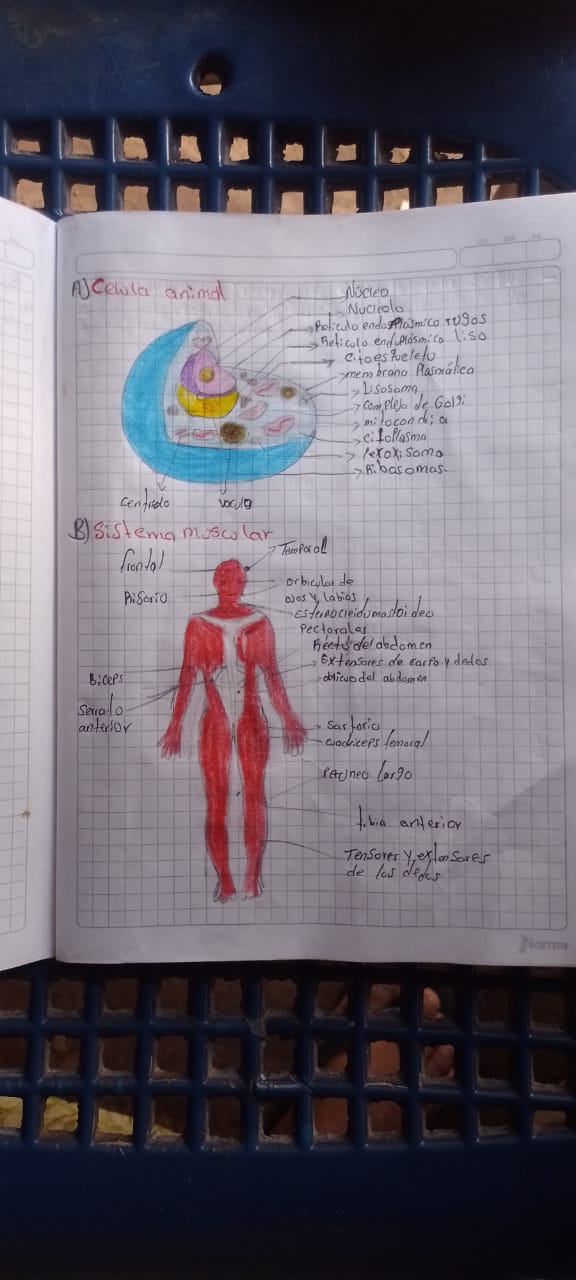 A) Celula animal
Núcleo
Nucleolo
Reticulo endoplásmico rugos
Reticulo endoplásmico liso
citoesqueleto
membrana Plasmática
Lisosoma
complejo de Golgi
mitocondria
citoplasma
Peroxisomo
Ribosomas
centriolo
vacula
B) Sistema muscular
Temporal
frontal
orbicular de
ojos y labios
Risorio
Esternocleidomastoideo
Pectorales
Recto del abdomen
Extensores de carpo y dedos
oblicuo del abdomen
Biceps
Serrato
anterior
Sartorio
cuadriceps femoral
Peroneo largo
tibia anterior
Tensores y extensores
de los dedos
Norma